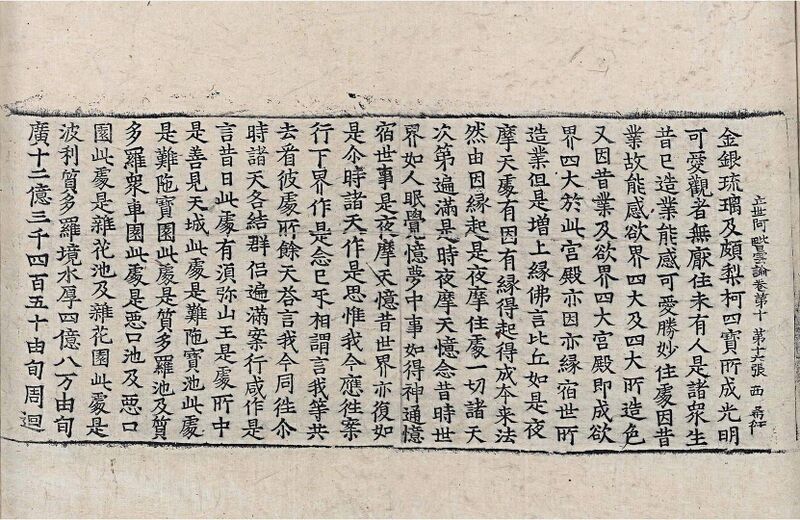 金銀琉璃及頗梨柯四寶所成光明
立世阿毗曇論卷第十 第十六張 西
可愛觀者無厭住未有人是諸衆生
昔已造業能感可愛勝妙住處因昔
業故能感欲界四大及四大所造色
又因昔業及欲界四大宮殿即成欲
界四大於此宮殿亦因亦緣宿世所
造業但是增上緣佛言比丘如是夜
摩天處有因有緣得起得成本來法
然由因緣起是夜摩住處一切諸天
次第遍滿是時夜摩天憶念昔時世
界如人眠覺憶夢中事如得神通憶
宿世事是夜摩天憶昔世界亦復如
是尒時諸天作是思惟我今應往案
行下界作是念已平相謂言我等共
去看彼處所餘天荅言我今同往尒
時諸天各結群侣遍滿案行咸作是
言昔日此處有須弥山王是處所中
是善見天城此處是難陁寶池此處
是難陁寶園此處是質多羅池及質
多羅衆車園此處是悪口池及悪口
園此處是雜花池及雜花園此處是
波利質多羅境水厚四億八万由旬
廣十二億三千四百五十由旬周迴